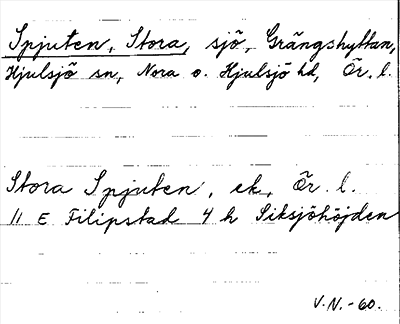 Spjuten, Stora, sjö, Grängshyttan,
Hjulsjö sn, Nora o. Hjulsjö hd, Ör. l.
Stora Spjuten, ek, Ör. l.
11 E Filipstad 4 h Siksjöhöjden
V.N.-60.